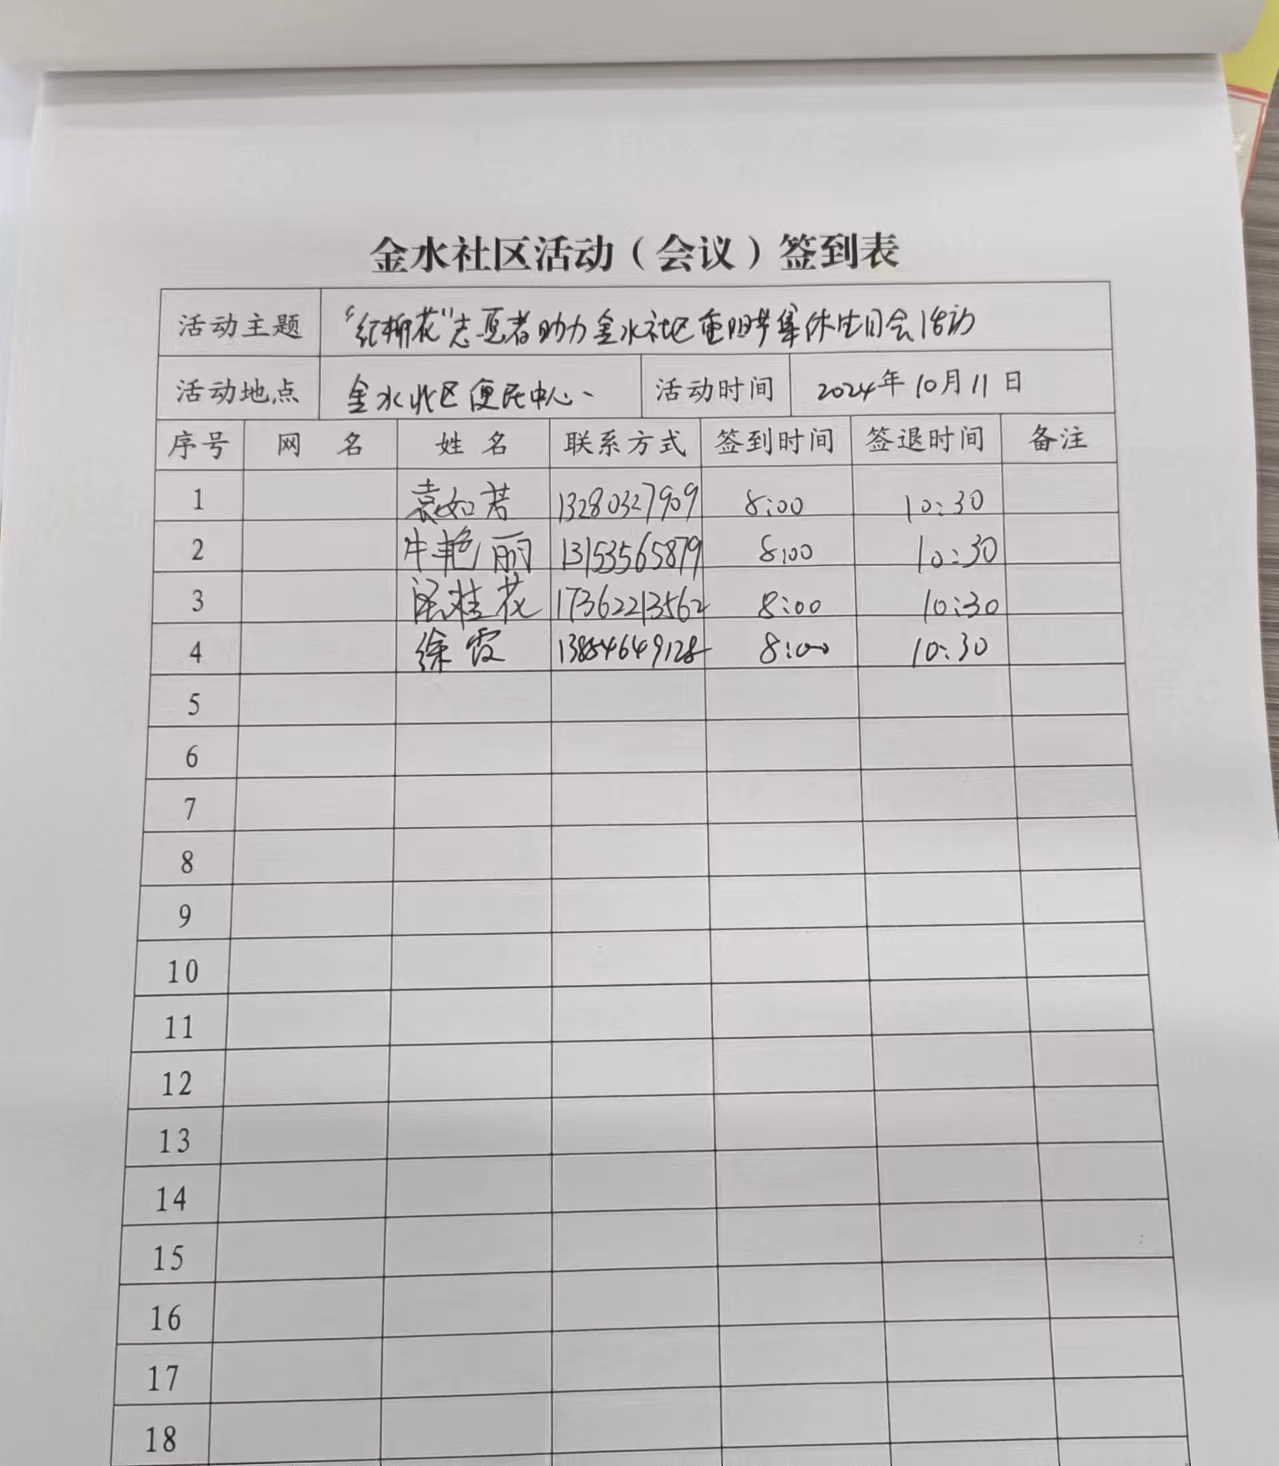 金水社区活动（会议）签到表
活动主题 “红柳花”志愿者助力金水社区重阳节集体生日会活动
活动地点 金水社区便民中心 活动时间 2024年10月11日
序号 网名 姓名 联系方式 签到时间 签退时间 备注
1 袁如芳 13280327909 8:00 10:30
2 牛艳丽 13153565879 8:00 10:30
3 桂花 17362213562 8:00 10:30
4 徐霞 13854649128 8:00 10:30
5
6
7
8
9
10
11
12
13
14
15
16
17
18